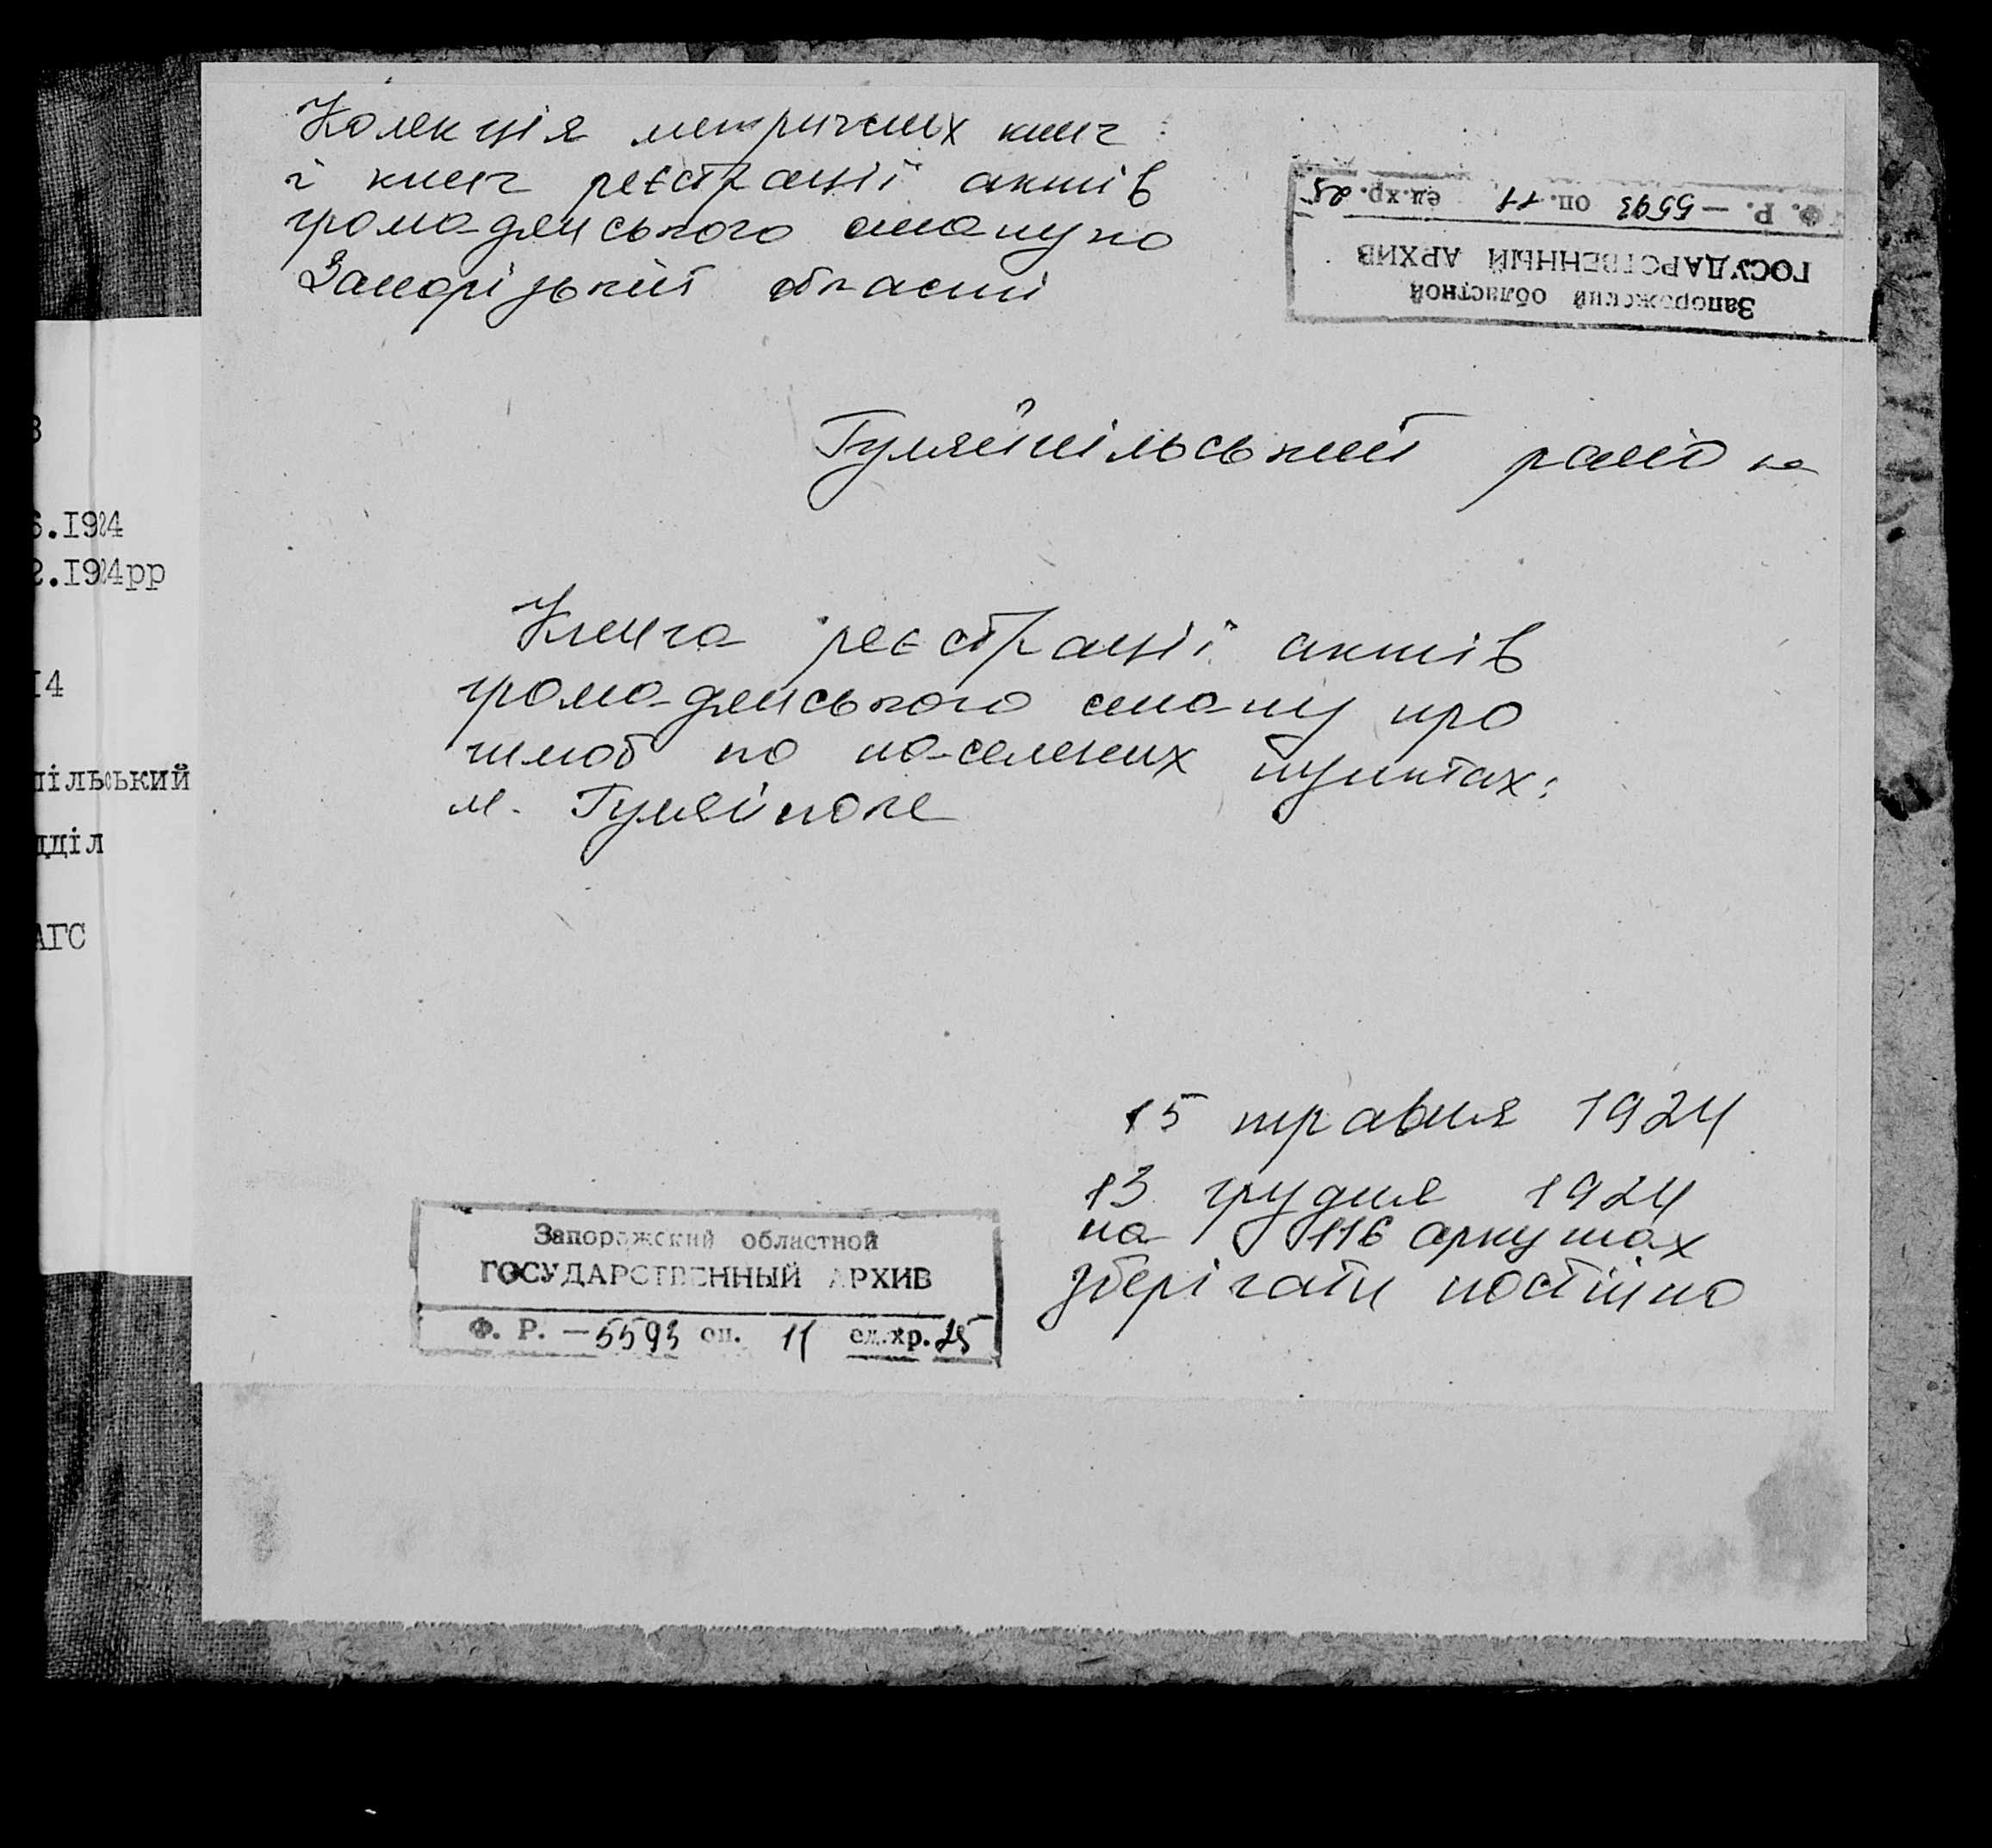 Колекція метричних книг
і книг реєстрації актів
громадянського стану по
Запорізькій області
Ф. Р. — 5593 оп. 11 ед.хр. 25
Запорожский областной
ГОСУДАРСТВЕННЫЙ АРХИВ
Гуляйпільський район
6.1924
2.1924рр
14
пільський
дділ
АГС
Книга реєстрації актів
громадянського стану про
шлюб по населених пунктах:
м. Гуляйполе
15 травня 1924
13 грудня 1924
на 116 аркушах
зберігати постійно
Запорожский областной
ГОСУДАРСТВЕННЫЙ АРХИВ
Ф. Р. — 5593 оп. 11 ед.хр. 25